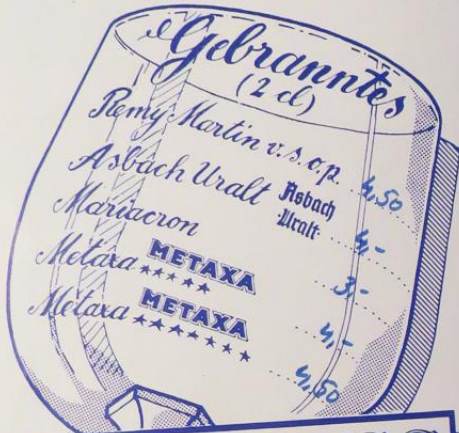 Gebranntes
(2 cl)
Remy Martin v.s.o.p. 4,50
Asbach Uralt Asbach Uralt 4,-
Mariacron 3,-
Metaxa METAXA ★★★★★ 4,-
Metaxa METAXA ★★★★★★★ 4,50